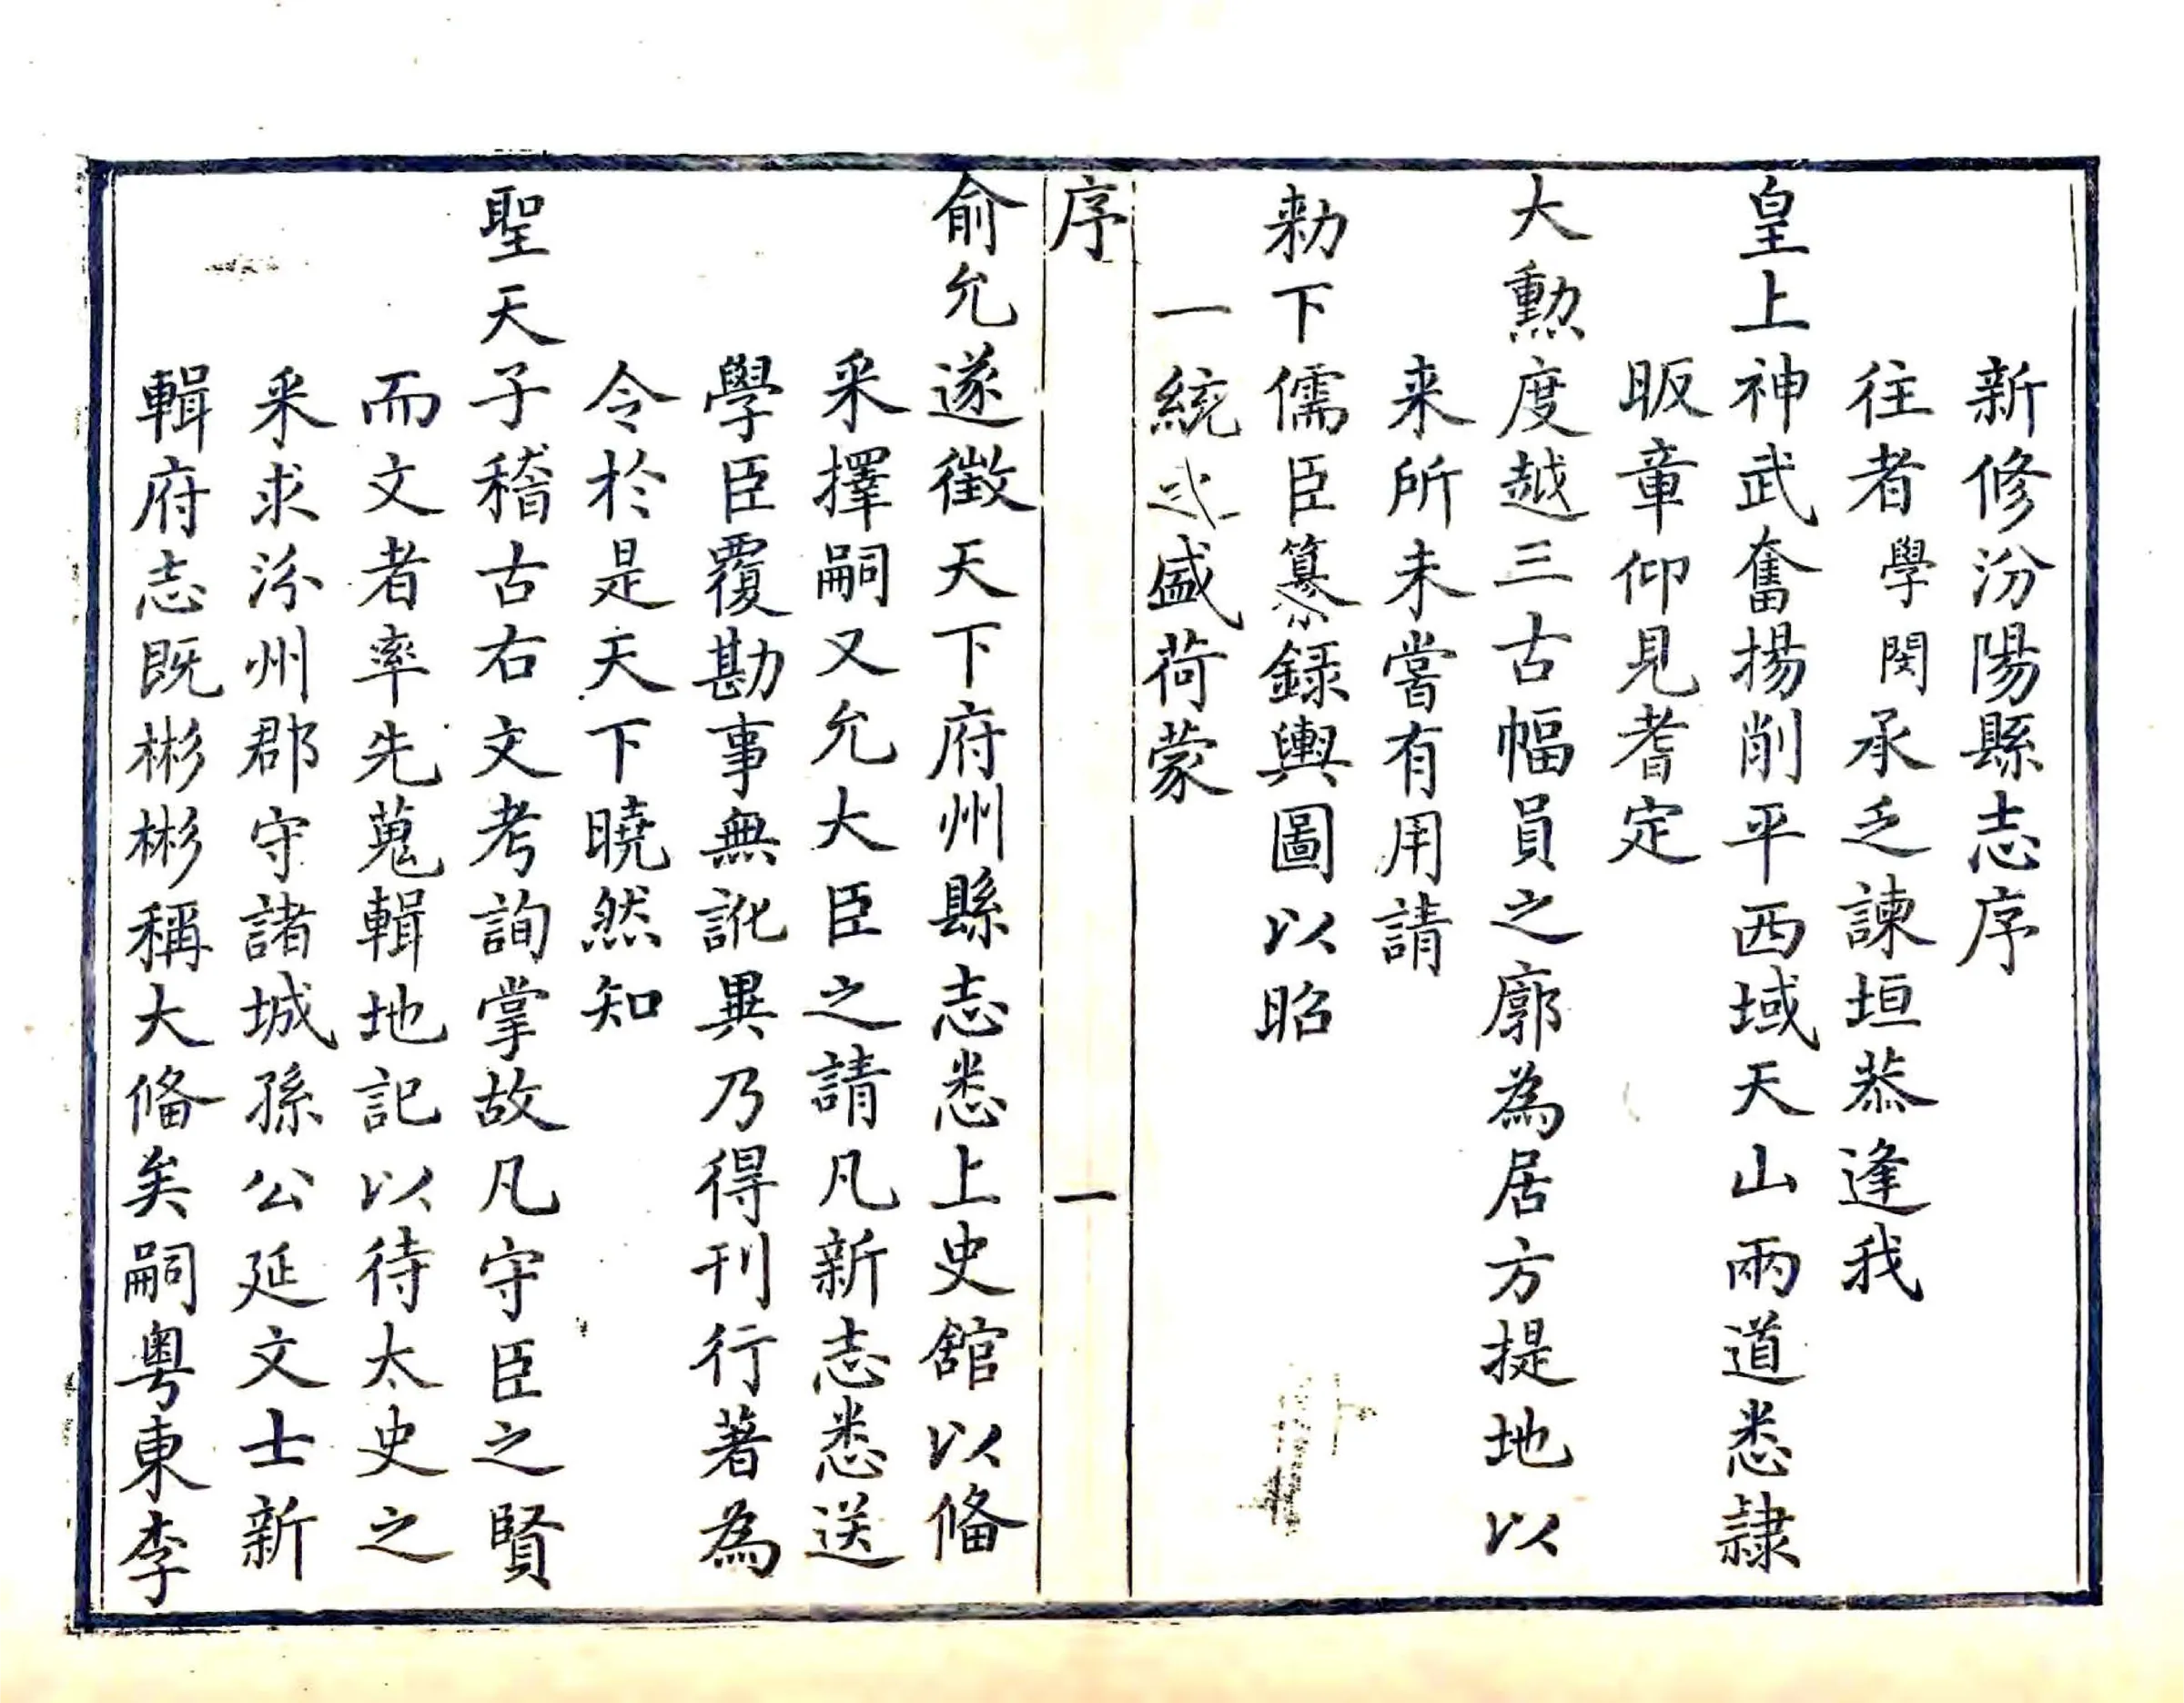 新修汾陽縣志序
往者學閔承乏諫垣恭逢我
皇上神武奮揚削平西域天山兩道悉隸
昄章仰見耆定
大勲度越三古幅員之廓為居方提地以
来所未嘗有用請
勑下儒臣纂録輿圖以昭
一統之盛荷蒙
序
一
俞允遂徵天下府州縣志悉上史舘以俻
采擇嗣又允大臣之請凡新志悉送
學臣覆勘事無訛異乃得刊行著為
令於是天下曉然知
聖天子稽古右文考詢掌故凡守臣之賢
而文者率先蒐輯地記以待太史之
采求汾州郡守諸城孫公延文士新
輯府志既彬彬稱大俻矣嗣粤東李